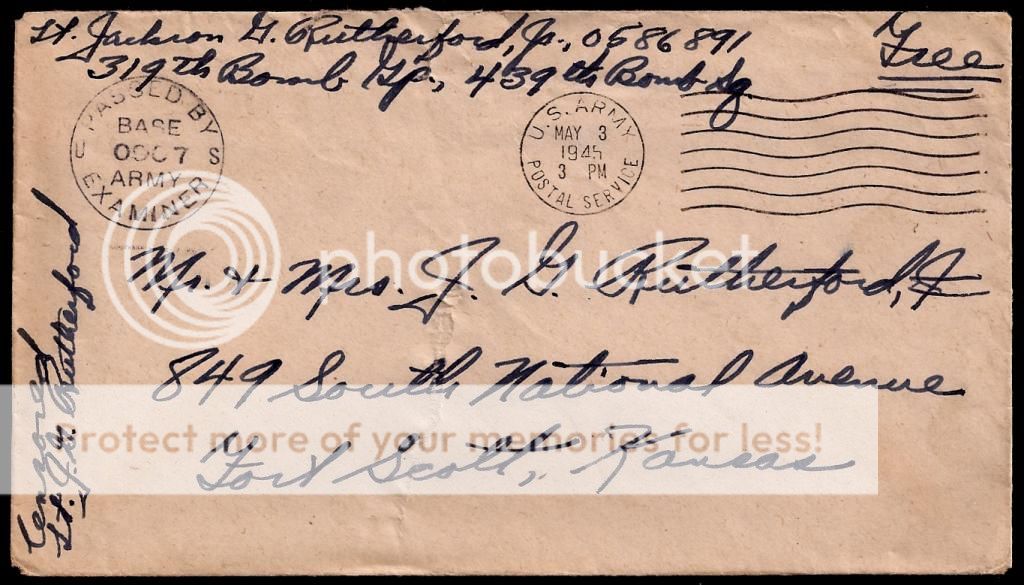 Lt. Jackson G. Rutherford, Jr., 0586891
319th Bomb Gp., 439th Bomb Sq
Free
U S
PASSED BY
BASE
0907
ARMY
EXAMINER
U.S. ARMY
MAY 3
1945
3 PM
POSTAL SERVICE
Mr. + Mrs. J. G. Rutherford,
849 South National Avenue
Fort Scott, Kansas
Censored
Lt. J. G. Rutherford
photobucket
Protect more of your memories for less!